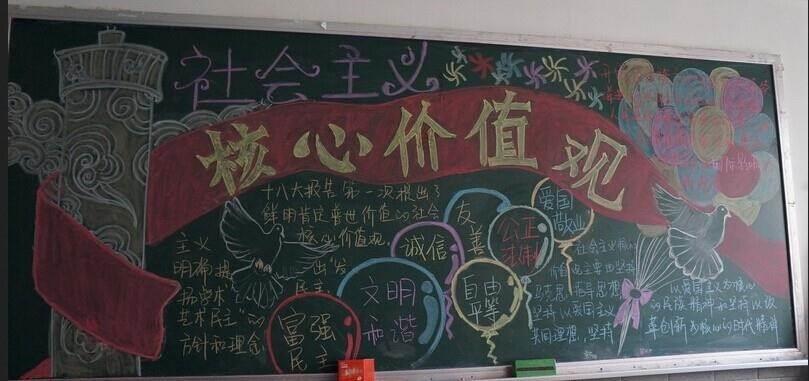 社会主义
核心价值观
十八大报告第一次提出了
鲜明肯定普世价值的社会
核心价值观。
主义
明确提出"发
扬学术
艺术民主"的
方针和理念
富强
民主
文明
和谐
诚信
友善
自由
平等
公正
法制
爱国
敬业
社会主义核心
价值观主要由坚持
马克思主义指导思想
坚持
共同理想，坚持
以爱国主义为核心
的民族精神和坚持以改
革创新为核心的时代精神